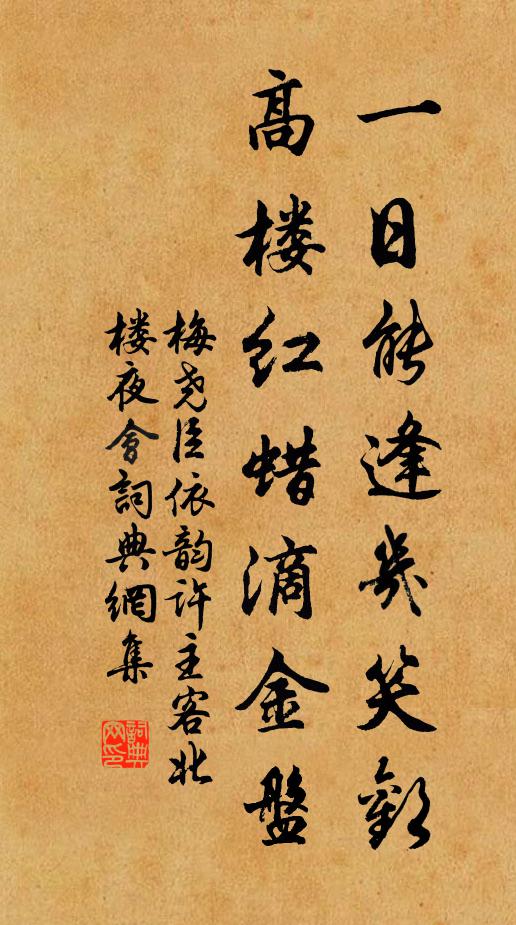 一日能逢幾笑歡
高楼红蜡滴金盤
梅尧臣依韵许主客北
楼夜會詞典網集
詞典網印